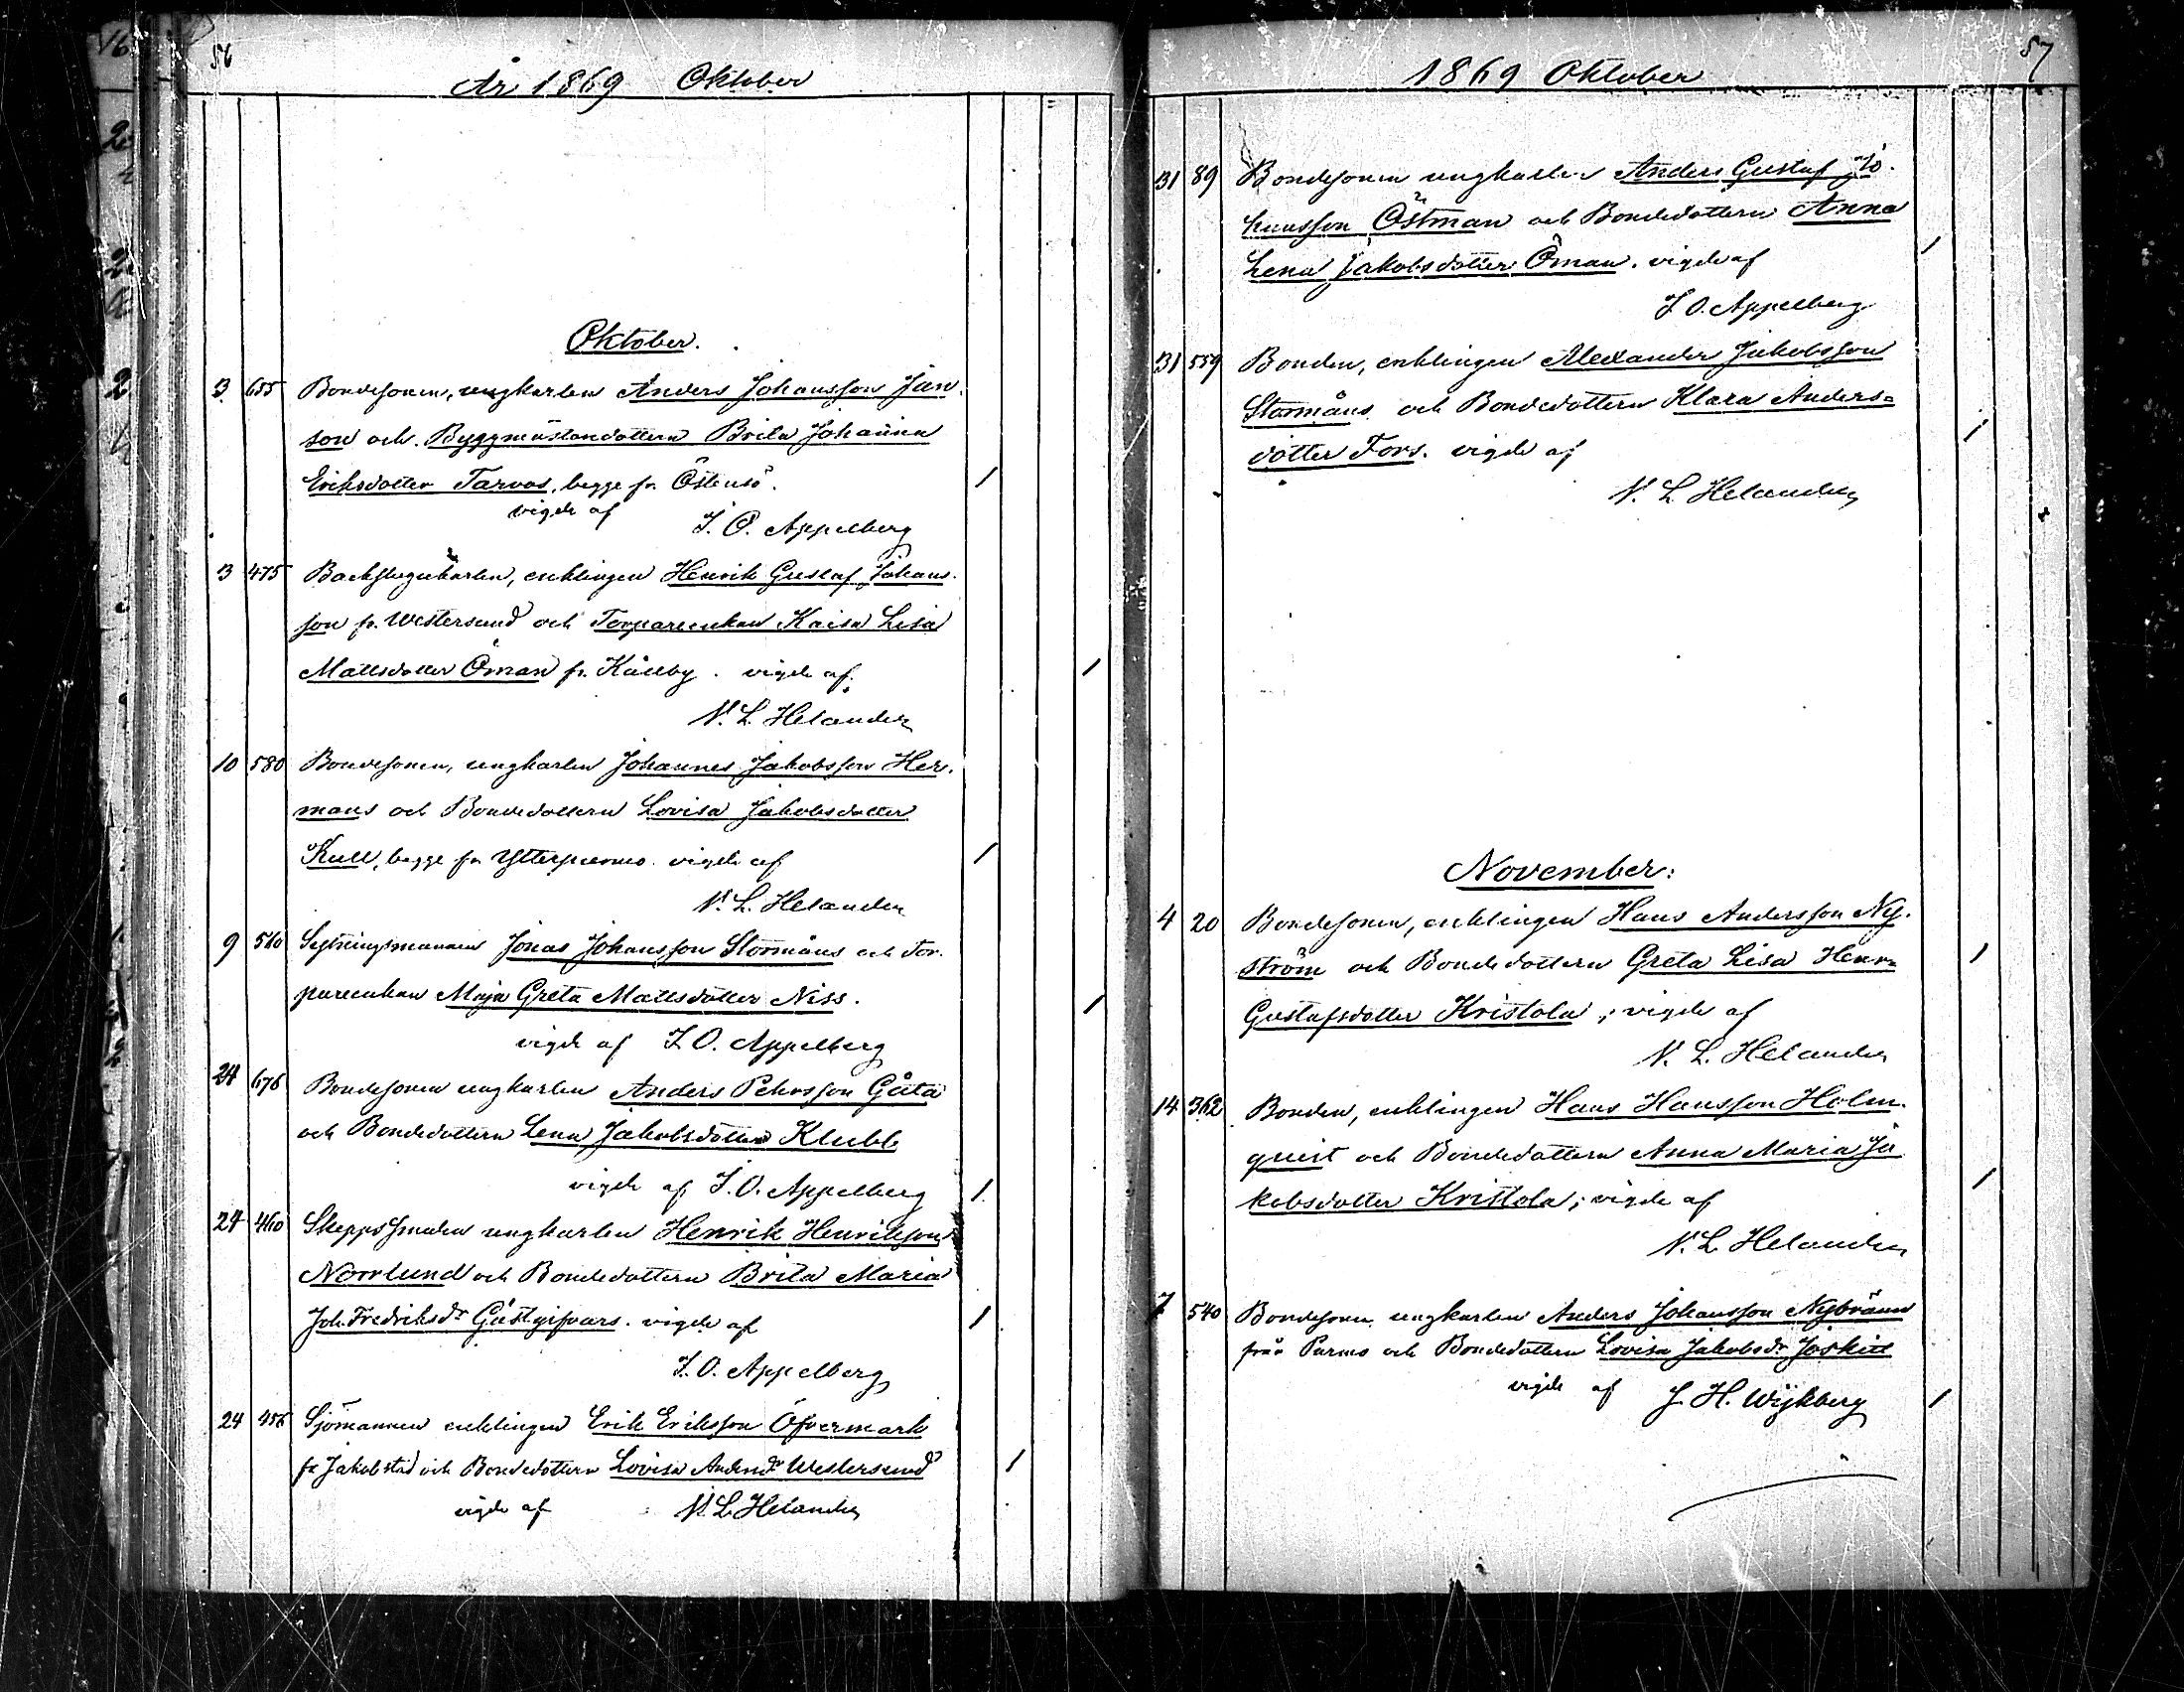 56
År 1869 Oktober
Oktober.
3 655 Bondesonen, ungkarlen Anders Johansson Jan
son och Byggmästaredottern Brita Johanna
Eriksdotter Tarvos, begge fr. Östensö.
vigde af
J. O. Appelberg
3 475 Backstugukarlen, enklingen Henrik Gustaf Johans
son fr. Westersund och Torpareenkan Kaisa Lisa
Mattsdotter Öman fr. Kållby. vigde af
N. L. Helander
10 580 Bondesonen, ungkarlen Johannes Jakobsson Her.
mans och Bondedottern Lovisa Jakobsdotter
Kull, begge fr Ytterpurmo. vigde af
N. L. Helander
9 560 Sytningsmannen Jonas Johansson Stormåns och Tor.
pareenkan Maja Greta Mattsdotter Niss.
vigde af J. O. Appelberg
24 676 Bondesonen ungkarlen Anders Pehrsson Gåta
och Bondedottern Lena Jakobsdotter Klubb
vigde af J. O. Appelberg
24 460 Skeppssmeden ungkarlen Henrik Henriksson
Norrlund och Bondedottern Brita Maria
Joh. Fredriksdr Gästgifvars. vigde af
J. O. Appelberg
24 456 Sjömannen enklingen Erik Eriksson Öfvermark
fr Jakobstad och Bondedottern Lovisa Andersdr Westersund
vigde af N. L. Helander
57
1869 Oktober
31 89 Bondesonen ungkarlen Anders Gustaf Jo.
hansson Östman och Bondedottern Anna
Lena Jakobsdotter Öman. vigde af
J. O. Appelberg
31 559 Bonden, enklingen Alexander Jakobsson
Stormåns och Bondedottern Klara Anders=
dotter Fors. vigde af
N. L. Helander
November:
4 20 Bondesonen, enklingen Hans Andersson Ny.
ström och Bondedottern Greta Lisa Henr.
Gustafsdotter Kristola; vigde af
N. L. Helander
14 362 Bonden, enklingen Hans Hansson Holm.
quist och Bondedottern Anna Maria Ja
kobsdotter Kristola; vigde af
N. L. Helander
7 540 Bondesonen ungkarlen Anders Johansson Nybränn
från Purmo och Bondedottern Lovisa Jakobsdr Joskitt
vigde af J. H. Wijkberg